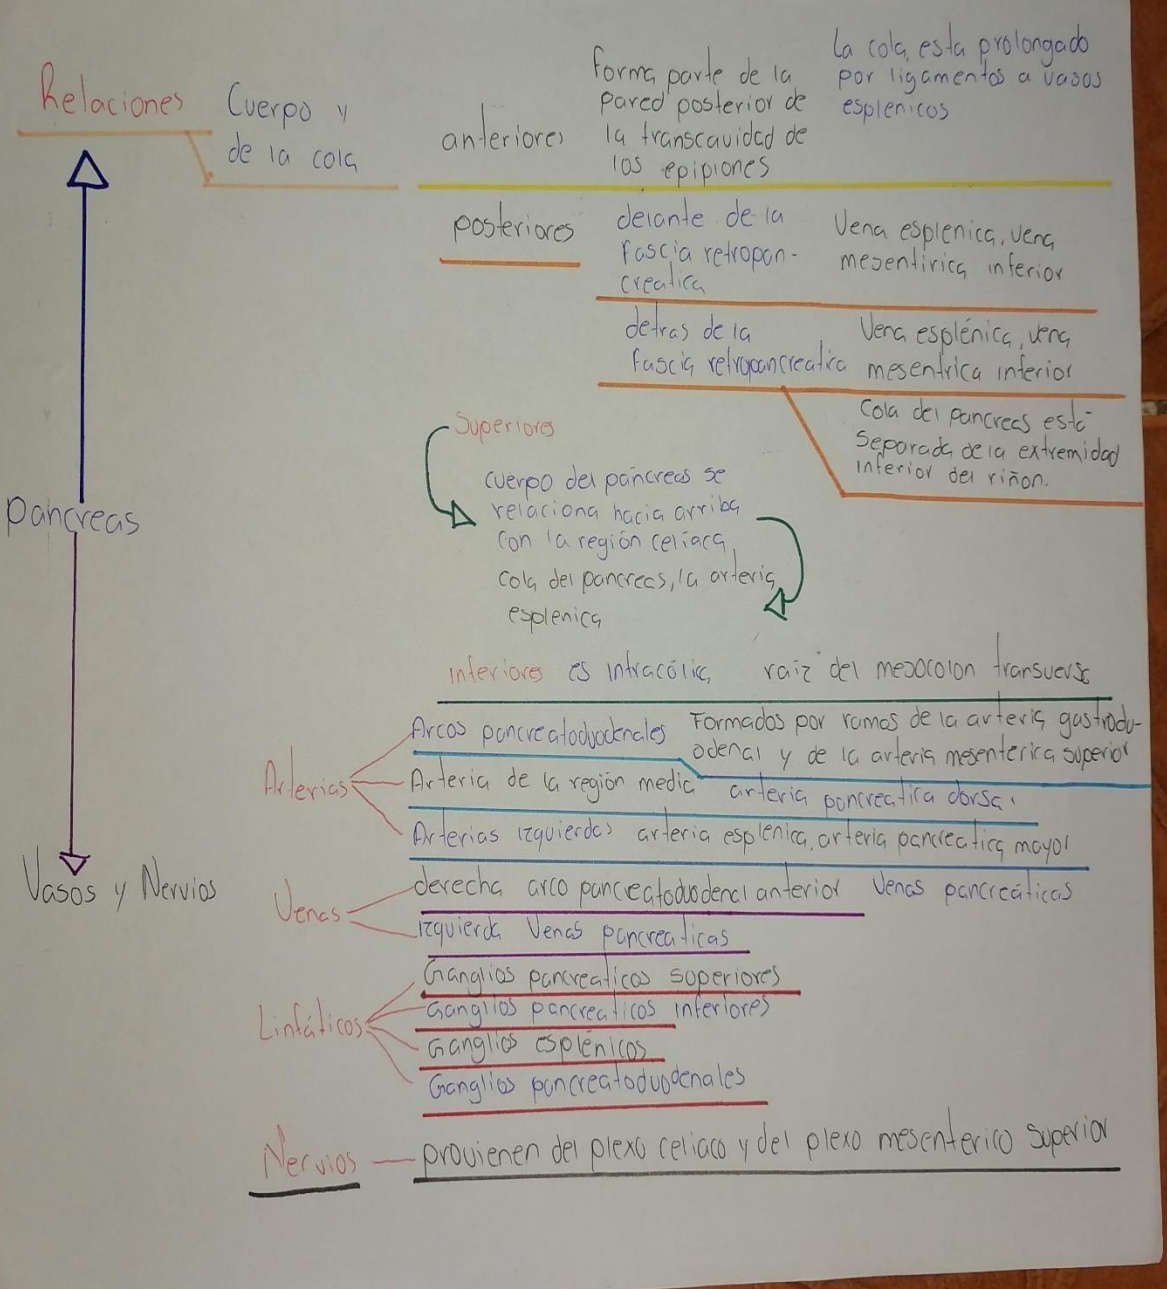 Relaciones
Cuerpo y
de la cola
anteriores
forma parte de la
pared posterior de
la transcavidad de
los epipiones
La cola, esta prolongado
por ligamentos a vasos
esplenicos
posteriores
delante de la
fascia retropan-
creatica
Vena esplenica, vena
mesentirica inferior
detras de la
fascia retropancreatica
Vena esplénica, vena
mesentrica inferior
Cola del pancreas está
separada de la extremidad
inferior del riñon.
Superiores
cuerpo del páncreas se
relaciona hacia arriba
con la región celíaca,
cola del pancreas, la arteria
esplenica
Pancreas
inferiores es intracólica, raiz del mesocolon transverso
Arterias
Arcos pancreatoduodenales Formados por ramas de la arteria gastrodu-
odenal y de la arteria mesenterica superior
Arteria de la región media arteria pancreatica dorsal
Arterias izquierdas arteria esplenica, arteria pancreatica mayor
Vasos y Nervios
Venas
derecha arco pancreatoduodenal anterior Venas pancreáticas
izquierda Venas pancreaticas
Linfáticos
Ganglios pancreaticos superiores
Ganglios pancreaticos inferiores
Ganglios esplénicos
Ganglios pancreatoduodenales
Nervios
provienen del plexo celiaco y del plexo mesenterico superior